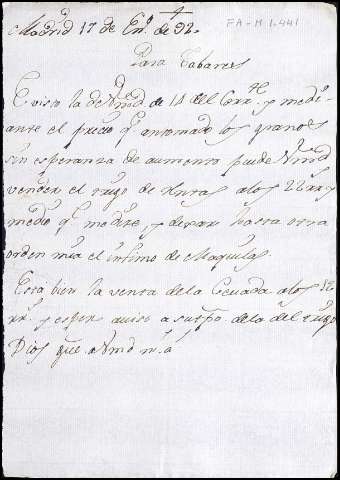 Madrid 17 de En.º de 92.
FA-M 1.441
Para Tabares
E visto la de Vmd de 14 del Corr.te y medi-
ante el precio q.e an tomado los granos
sin esperanza de aumento puede Vmd
vender el trigo de a los 22 rr.s y
medio q.e me dize, y dexar hasta otra
orden mia el infimo de Maquilas.
Esta bien la venta de la Cevada a los 12
rr.s y espero aviso a su tpo. de la del trigo
Dios gue. a Vmd m.s a.s